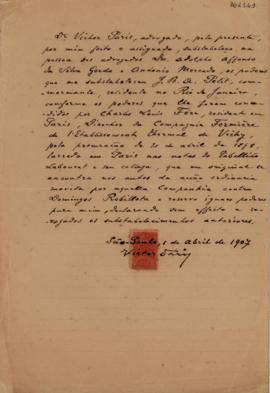 Dr. Victor Páris, advogado, pelo presente,
por mim feito e assignado, substabeleço na
pessoa dos advogados Drs. Adolpho Affonso
da Silva Gordo e Antonio Mercado, os poderes
que me substabeleceu J. R. A. com-
merciante, residente no Rio de Janeiro,
conforme os poderes que lhe foram con-
cedidos por Charles Louis Fère, residente em
Paris, Director da Compagnie Fermière
de l'Etablissement thermal de Vichy,
pela procuração de 20 de abril de 1898,
lavrada em Paris nas notas do Tabellião
e seu collega, que em original se
encontra nos autos da acção ordinaria
movida por aquella Companhia contra
Domingos e reservo iguaes poderes
para mim, declarando sem effeito e re-
vogados os substabelecimentos anteriores.
São-Paulo, 1 de Abril de 1907
Victor Páris